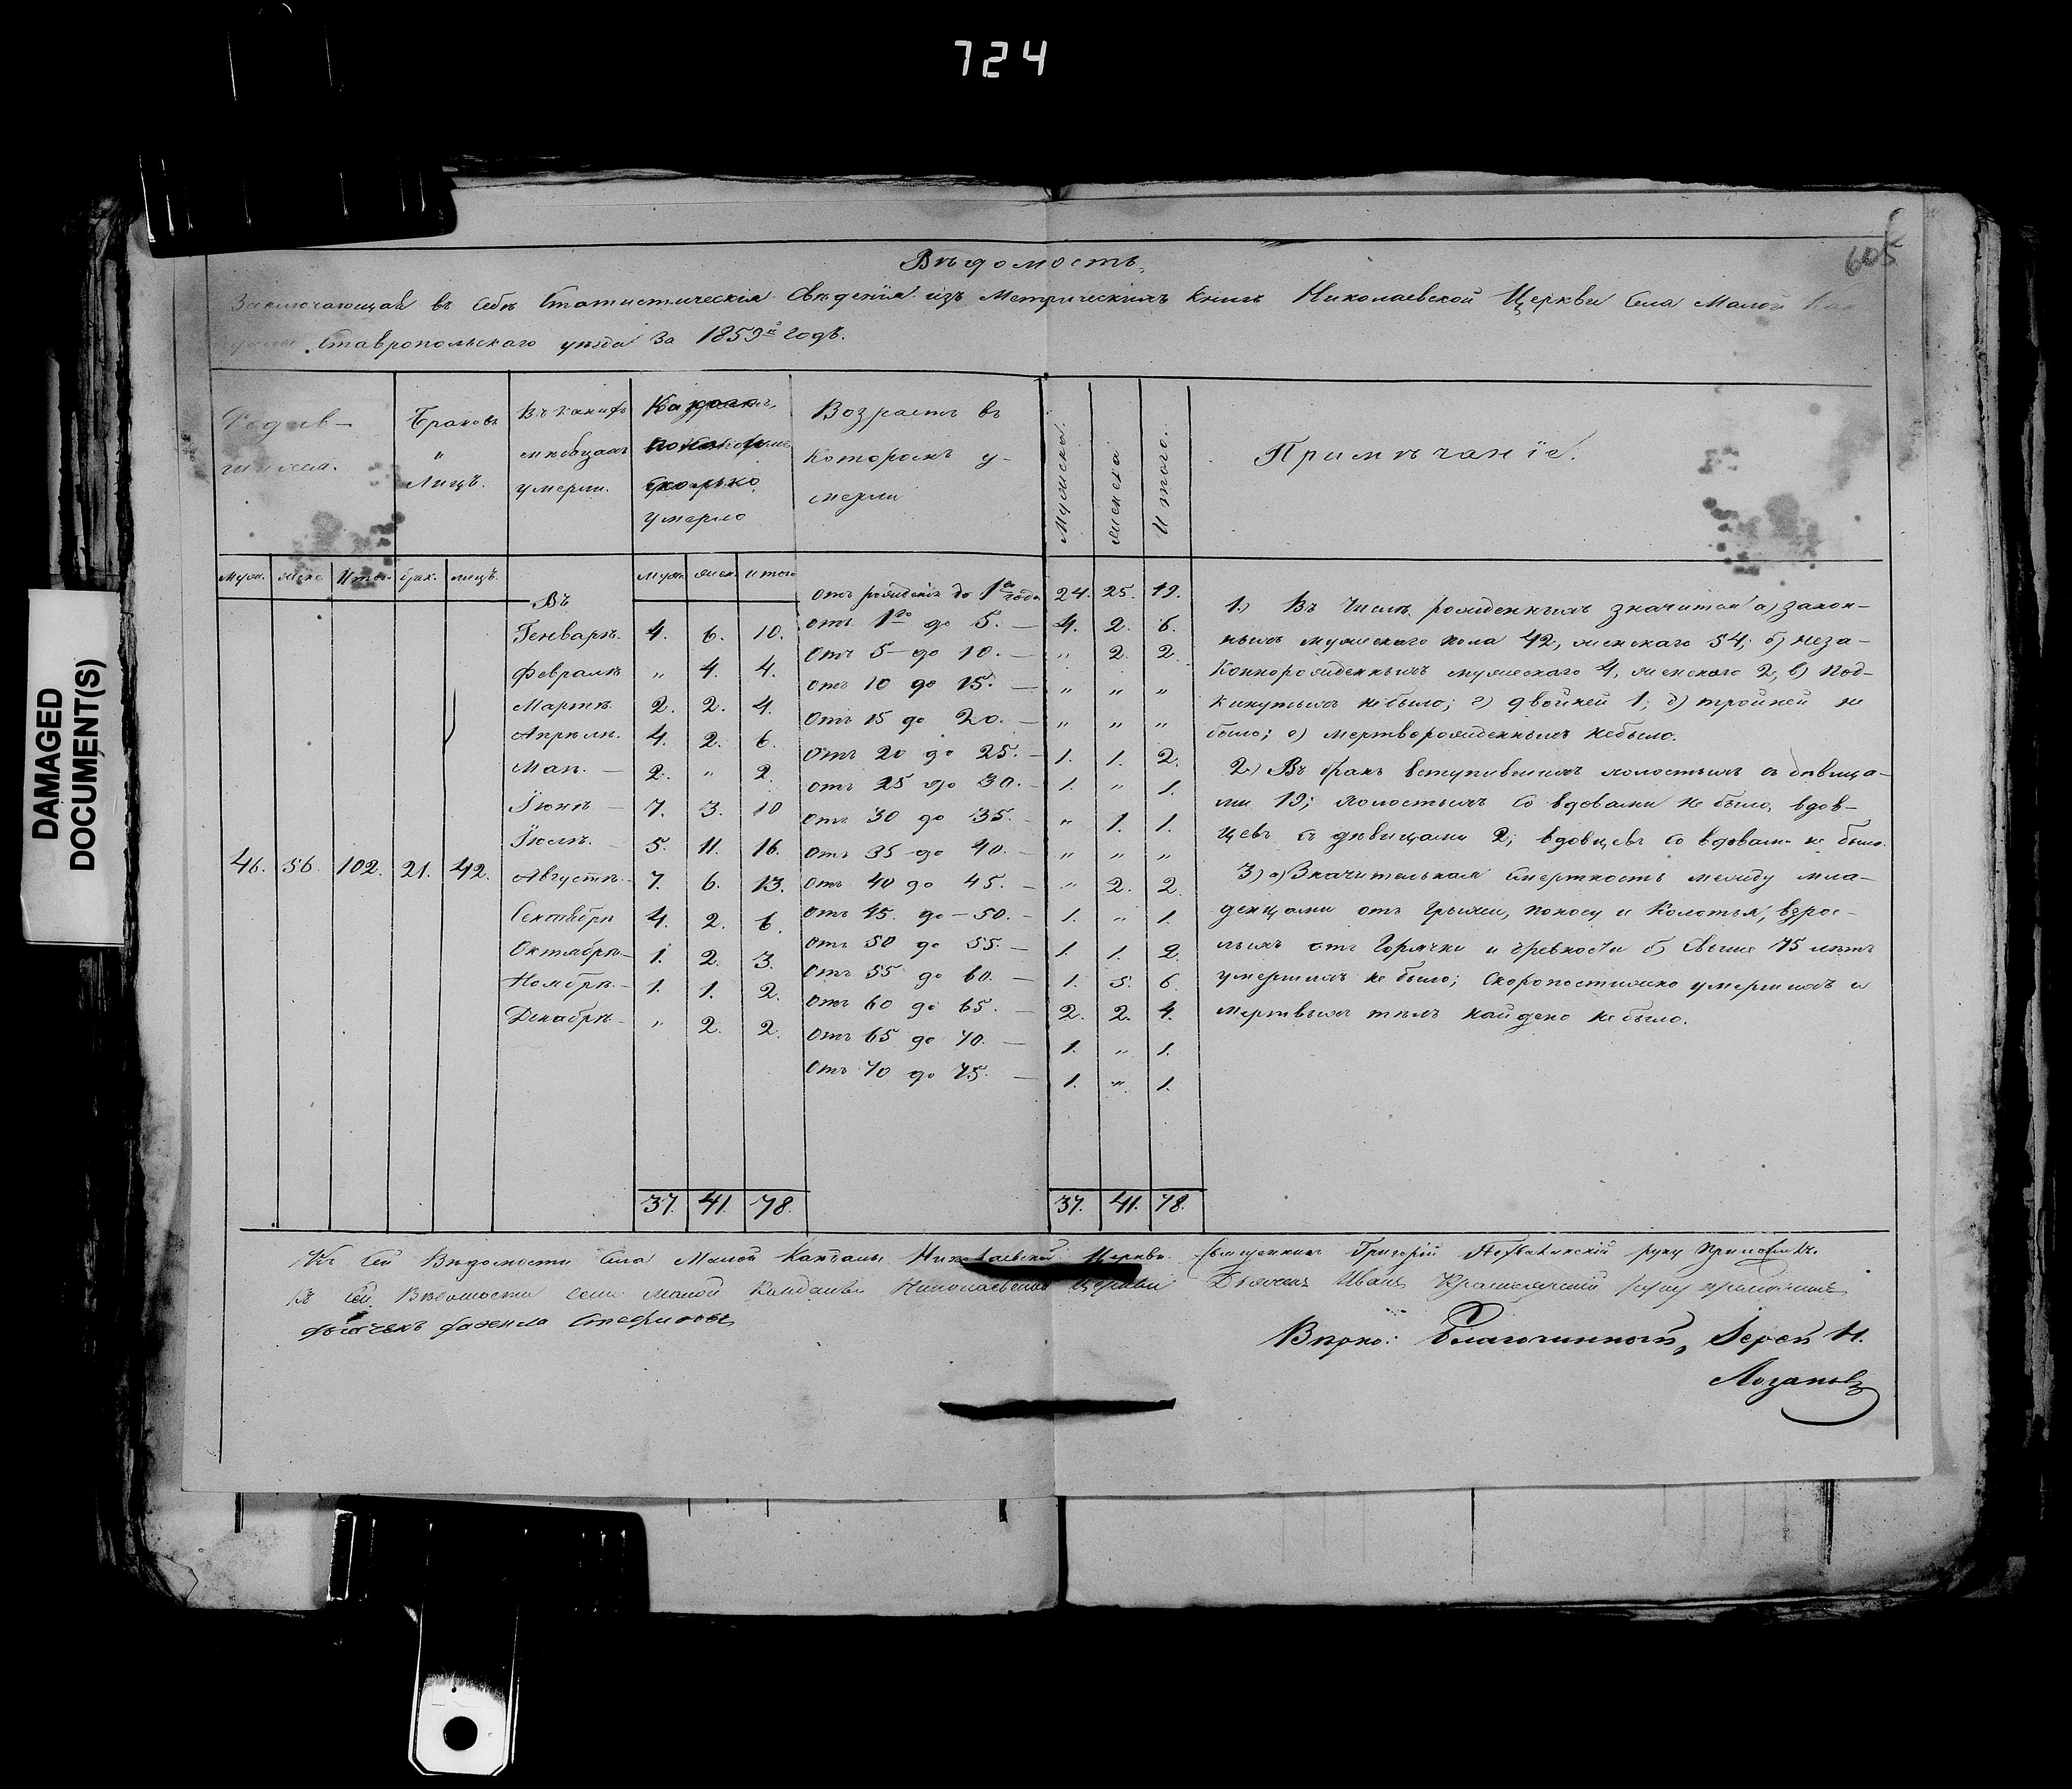 724
605
DAMAGED
DOCUMENT(S)
Вѣдомость,
Заключающая въ себѣ Статистическія Свѣденія изъ Метрическихъ Книгъ Николаевской Церкви Села Малой Кан
Ставропольскаго уѣзда За 1859й годъ.
Родив-
шихся.
Браковъ
"
Лицъ.
Въ какихъ
мѣсяцахъ
умерли.
сколько
умерло
Возрастъ въ
которомъ у-
мерли
Мужска.
женска
Итого.
Примѣчаніе.
муж. женс. Итог. брак. лицъ. муж. жен. итого
46. 56. 102. 21. 42.
Въ
Генварѣ. 4. 6. 10.
Февралѣ " 4. 4.
Мартѣ. 2. 2. 4.
Апрѣлѣ. 4. 2. 6.
Маѣ. — 2. " 2.
Іюнѣ — 7. 3. 10
Іюлѣ. 5. 11. 16.
Августѣ. 7. 6. 13.
Сентябрѣ 4. 2. 6.
Октябрѣ. 1. 2. 3.
Ноябрѣ. 1. 1. 2.
Декабрѣ " 2. 2.
37. 41. 78.
отъ рожденія до 1го года 24. 25. 49.
отъ 1го до 5. — 4. 2. 6.
Отъ 5 до 10. — " 2. 2.
отъ 10 до 15. — " " "
Отъ 15 до 20. — " " "
Отъ 20 до 25. — 1. 1. 2.
отъ 25 до 30. — 1. " 1.
отъ 30 до 35. — " 1. 1.
отъ 35 до 40. — " " "
Отъ 40 до 45. — " 2. 2.
отъ 45 до 50. — 1. " 1.
отъ 50 до 55. — 1. 1. 2.
Отъ 55 до 60. — 1. 5. 6.
отъ 60 до 65. — 2. 2. 4.
отъ 65 до 70. — 1. " 1.
Отъ 70 до 75. — 1. " 1.
37. 41. 78.
1.) Въ числѣ рожденныхъ значится а) закон-
ныхъ мужескаго пола 42, женскаго 54; б) неза-
коннорожденныхъ мужескаго 4, женскаго 2, в) под-
кинутыхъ небыло; г) двойней 1; д) тройней не
было; е) мертворожденныхъ небыло.
2.) Въ бракъ вступившихъ холостыхъ съ дѣвица-
ми 19; холостыхъ со вдовами не было, вдов-
цевъ съ дѣвицами 2; вдовцевъ со вдовами не было.
3) а) Значительная смертность между мла-
денцами отъ Грыжи, поносу и Колотья, взрос-
лыхъ отъ Горячки и древности б) Свыше 75 лѣтъ
умершихъ не было; Скоропостижно умершихъ и
мертвыхъ тѣлъ найдено небыло.
Къ сей Вѣдомости Села Малой Кандалы Николаевской Церкви Священникъ Григорій руку приложилъ.
Къ сей Вѣдомости села малой Кандалы Николаевской Церкви Дьяконъ Иванъ руку приложилъ
Дьячекъ Стефановъ
Вѣрно: Благочинный, Іерей Н.
Лозановъ